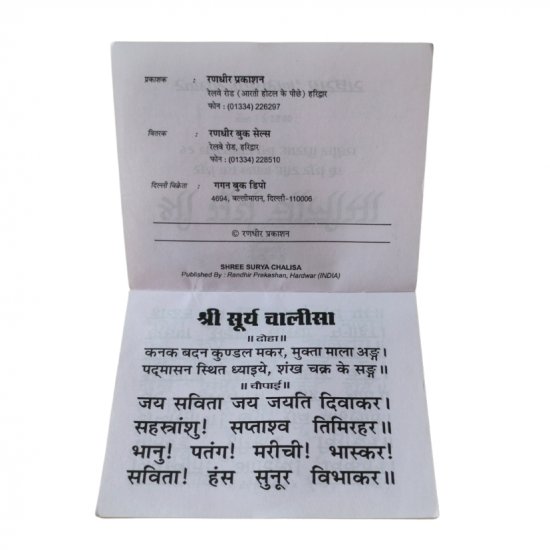 प्रकाशक : रणधीर प्रकाशन
रेलवे रोड (आरती होटल के पीछे) हरिद्वार
फोन : (01334) 226297
वितरक : रणधीर बुक सेल्स
रेलवे रोड, हरिद्वार
फोन : (01334) 228510
दिल्ली विक्रेता : गगन बुक डिपो
4694, बल्लीमारान, दिल्ली-110006
© रणधीर प्रकाशन
SHREE SURYA CHALISA
Published By : Randhir Prakashan, Hardwar (INDIA)
श्री सूर्य चालीसा
॥ दोहा ॥
कनक बदन कुण्डल मकर, मुक्ता माला अङ्ग।
पद्मासन स्थित ध्याइये, शंख चक्र के सङ्ग॥
॥ चौपाई ॥
जय सविता जय जयति दिवाकर।
सहस्त्रांशु! सप्ताश्व तिमिरहर॥
भानु! पतंग! मरीची! भास्कर!
सविता! हंस सुनूर विभाकर॥